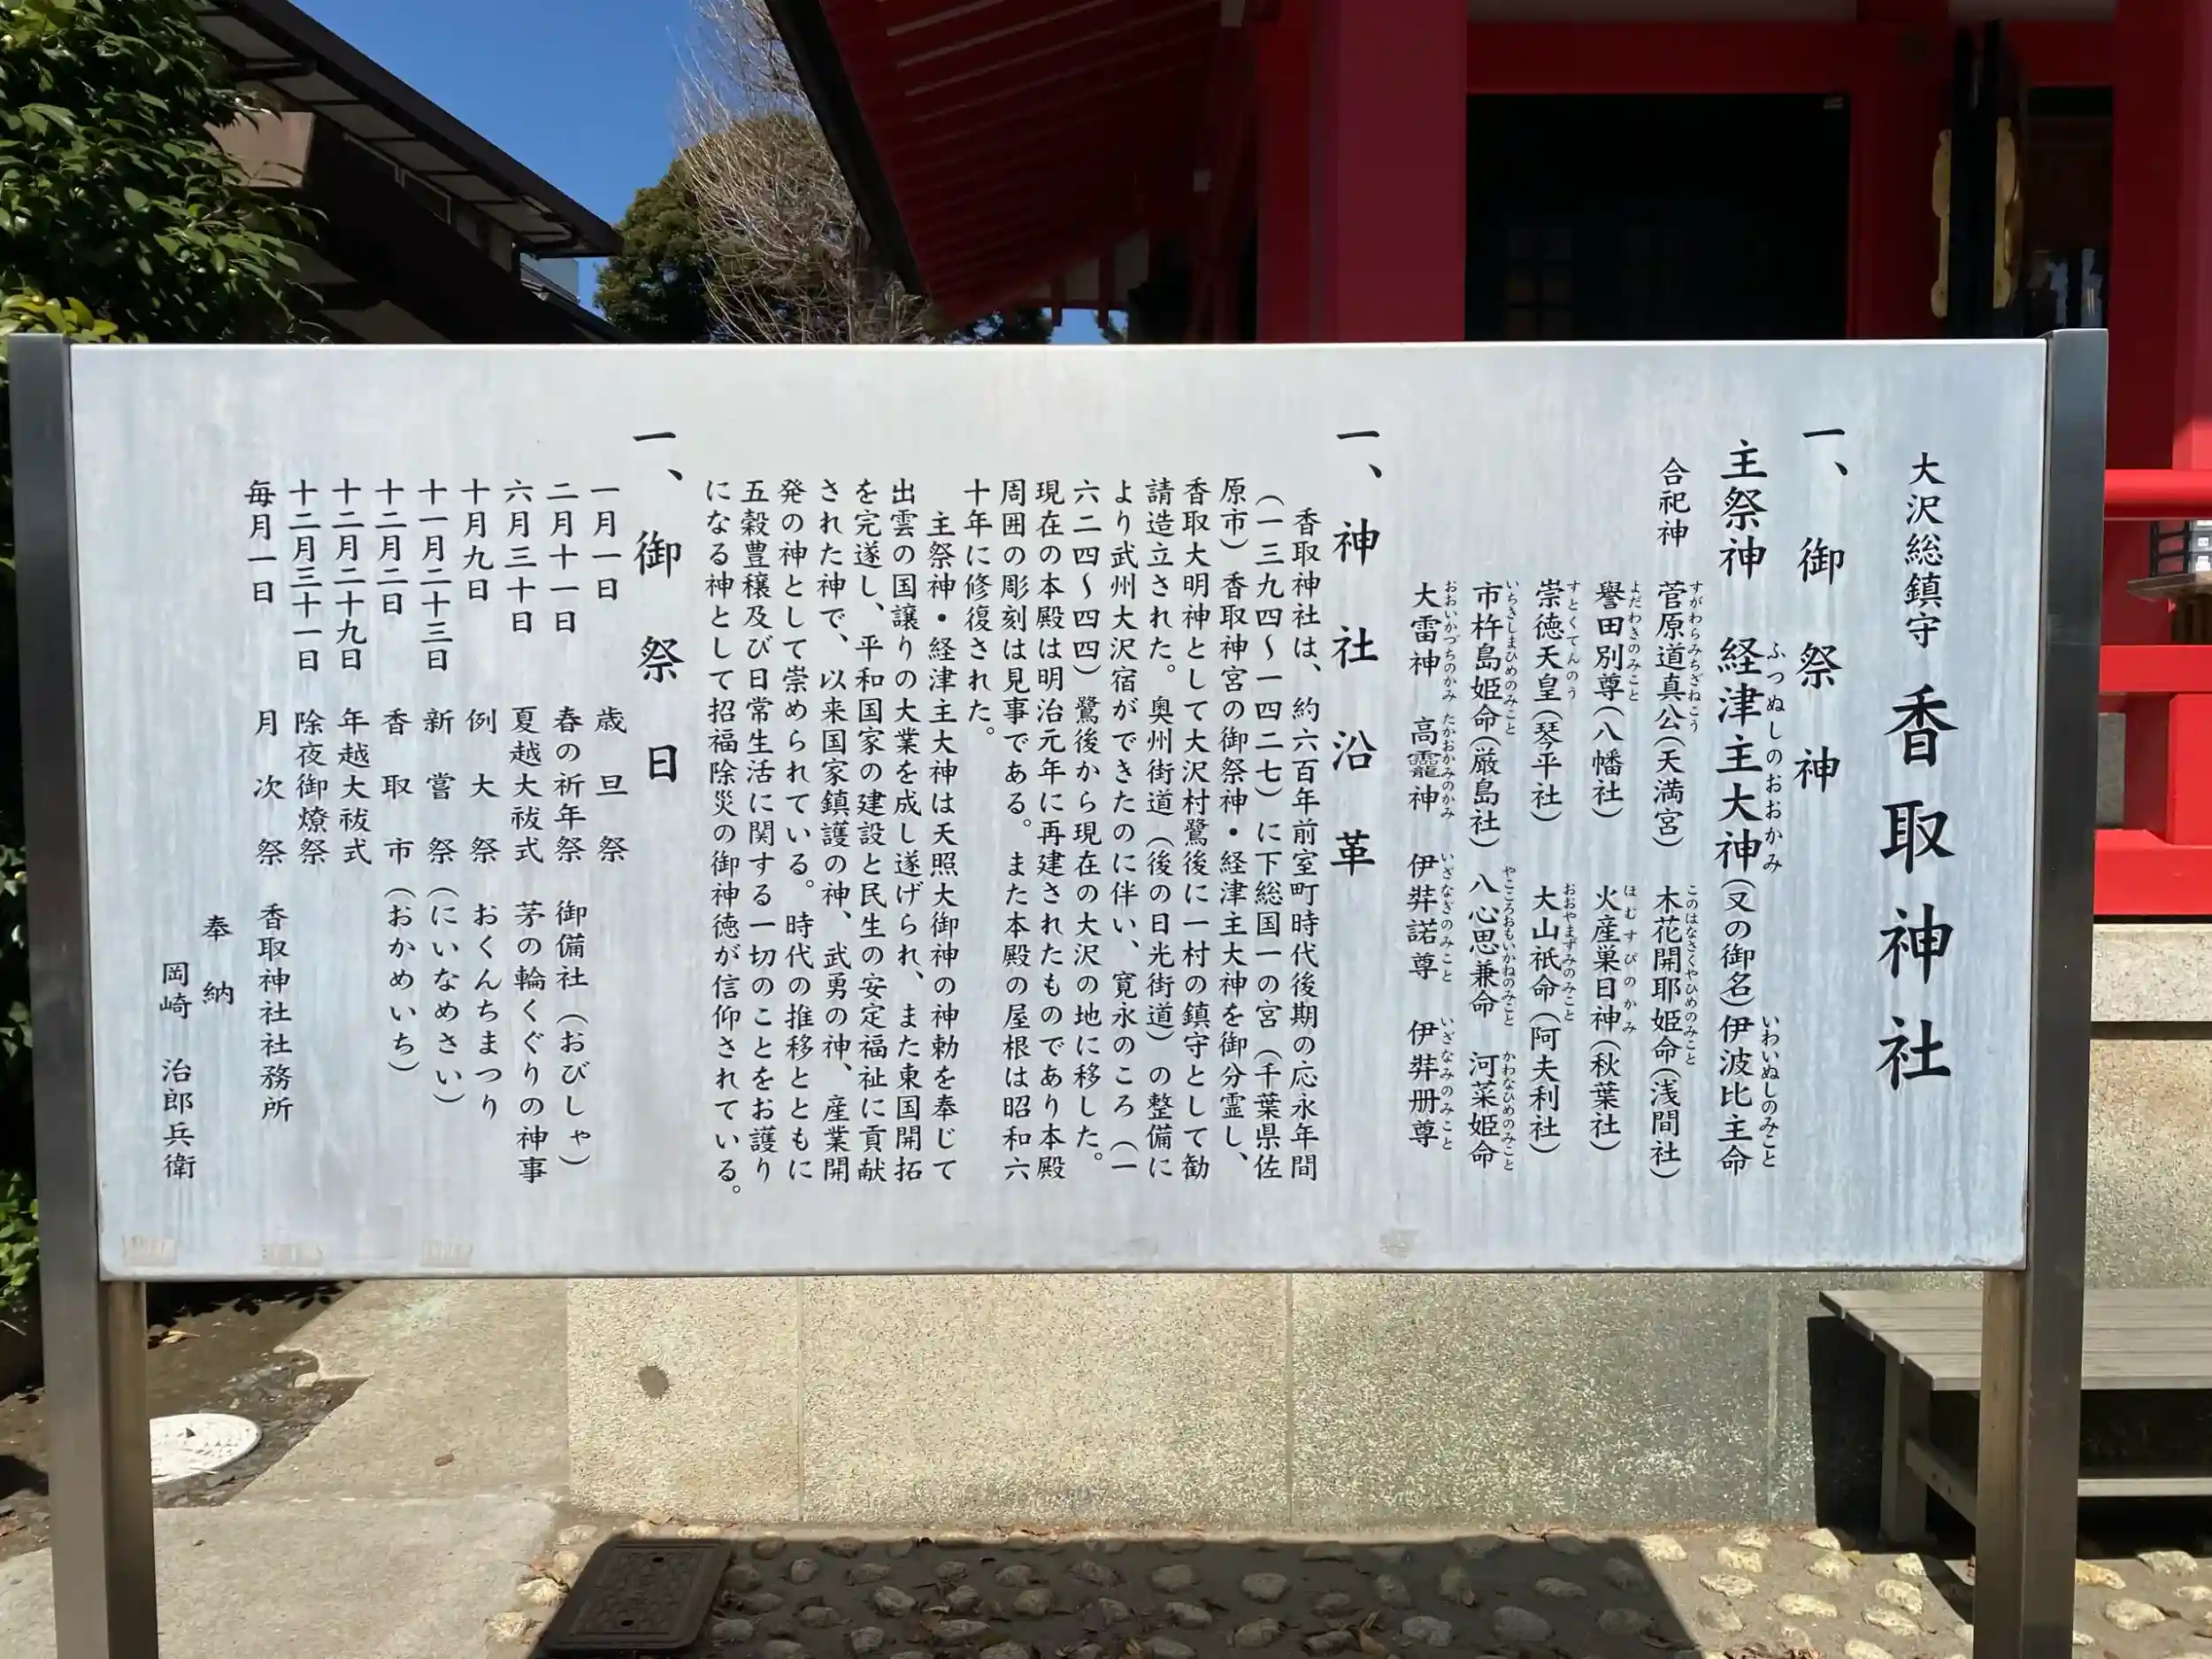 大沢総鎮守 香取神社
一、御祭神
主祭神 経津主大神(又の御名)伊波比主命
ふつぬしのおおかみ いわいぬしのみこと
合祀神 菅原道真公(天満宮) 木花開耶姫命(浅間社)
すがわらみちざねこう このはなさくやひめのみこと
譽田別尊(八幡社) 火産巣日神(秋葉社)
よだわきのみこと ほむすびのかみ
崇徳天皇(琴平社) 大山祇命(阿夫利社)
すとくてんのう おおやまずみのみこと
市杵島姫命(厳島社) 八心思兼命 河菜姫命
いちきしまひめのみこと やこころおもいかねのみこと かわなひめのみこと
大雷神 高龗神 伊弉諾尊 伊弉册尊
おおいかづちのかみ たかおかみのかみ いざなぎのみこと いざなみのみこと
一、神社沿革
香取神社は、約六百年前室町時代後期の応永年間
(一三九四〜一四二七)に下総国一の宮(千葉県佐
原市)香取神宮の御祭神・経津主大神を御分霊し、
香取大明神として大沢村鷺後に一村の鎮守として勧
請造立された。奥州街道(後の日光街道)の整備に
より武州大沢宿ができたのに伴い、寛永のころ(一
六二四〜四四)鷺後から現在の大沢の地に移した。
現在の本殿は明治元年に再建されたものであり本殿
周囲の彫刻は見事である。また本殿の屋根は昭和六
十年に修復された。
主祭神・経津主大神は天照大御神の神勅を奉じて
出雲の国譲りの大業を成し遂げられ、また東国開拓
を完遂し、平和国家の建設と民生の安定福祉に貢献
された神で、以来国家鎮護の神、武勇の神、産業開
発の神として崇められている。時代の推移とともに
五穀豊穣及び日常生活に関する一切のことをお護り
になる神として招福除災の御神徳が信仰されている。
一、御祭日
一月一日 歳旦祭
二月十一日 春の祈年祭 御備社(おびしゃ)
六月三十日 夏越大祓式 茅の輪くぐりの神事
十月九日 例大祭 おくんちまつり
十一月二十三日 新嘗祭(にいなめさい)
十二月二日 香取市(おかめいち)
十二月二十九日 年越大祓式
十二月三十一日 除夜御燎祭
毎月一日 月次祭 香取神社社務所
奉納
岡崎 治郎兵衛